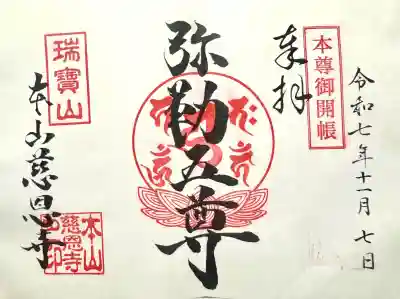 本尊御開帳
令和七年十一月七日
奉拝
弥勒五尊
瑞寳山
本山慈恩寺
本山
慈恩寺